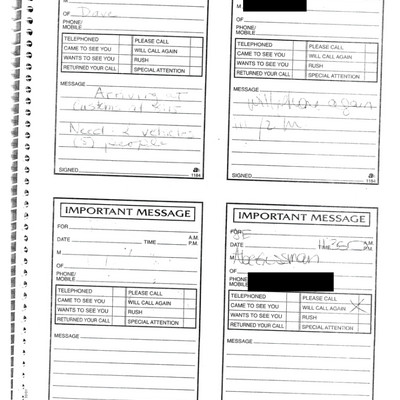 OF Dave
PHONE/
MOBILE
TELEPHONED PLEASE CALL
CAME TO SEE YOU WILL CALL AGAIN
WANTS TO SEE YOU RUSH
RETURNED YOUR CALL SPECIAL ATTENTION
MESSAGE
Arriving at
Need 2 vehicles
(5) people
SIGNED
1184
OF
PHONE/
MOBILE
TELEPHONED PLEASE CALL
CAME TO SEE YOU WILL CALL AGAIN
WANTS TO SEE YOU RUSH
RETURNED YOUR CALL SPECIAL ATTENTION
MESSAGE
again
SIGNED
1184
IMPORTANT MESSAGE
FOR
DATE TIME A.M.
P.M.
M
OF
PHONE/
MOBILE
TELEPHONED PLEASE CALL
CAME TO SEE YOU WILL CALL AGAIN
WANTS TO SEE YOU RUSH
RETURNED YOUR CALL SPECIAL ATTENTION
MESSAGE
IMPORTANT MESSAGE
FOR JE
DATE TIME A.M.
P.M.
M
OF
PHONE/
MOBILE
TELEPHONED PLEASE CALL
CAME TO SEE YOU WILL CALL AGAIN X
WANTS TO SEE YOU RUSH
RETURNED YOUR CALL SPECIAL ATTENTION
MESSAGE